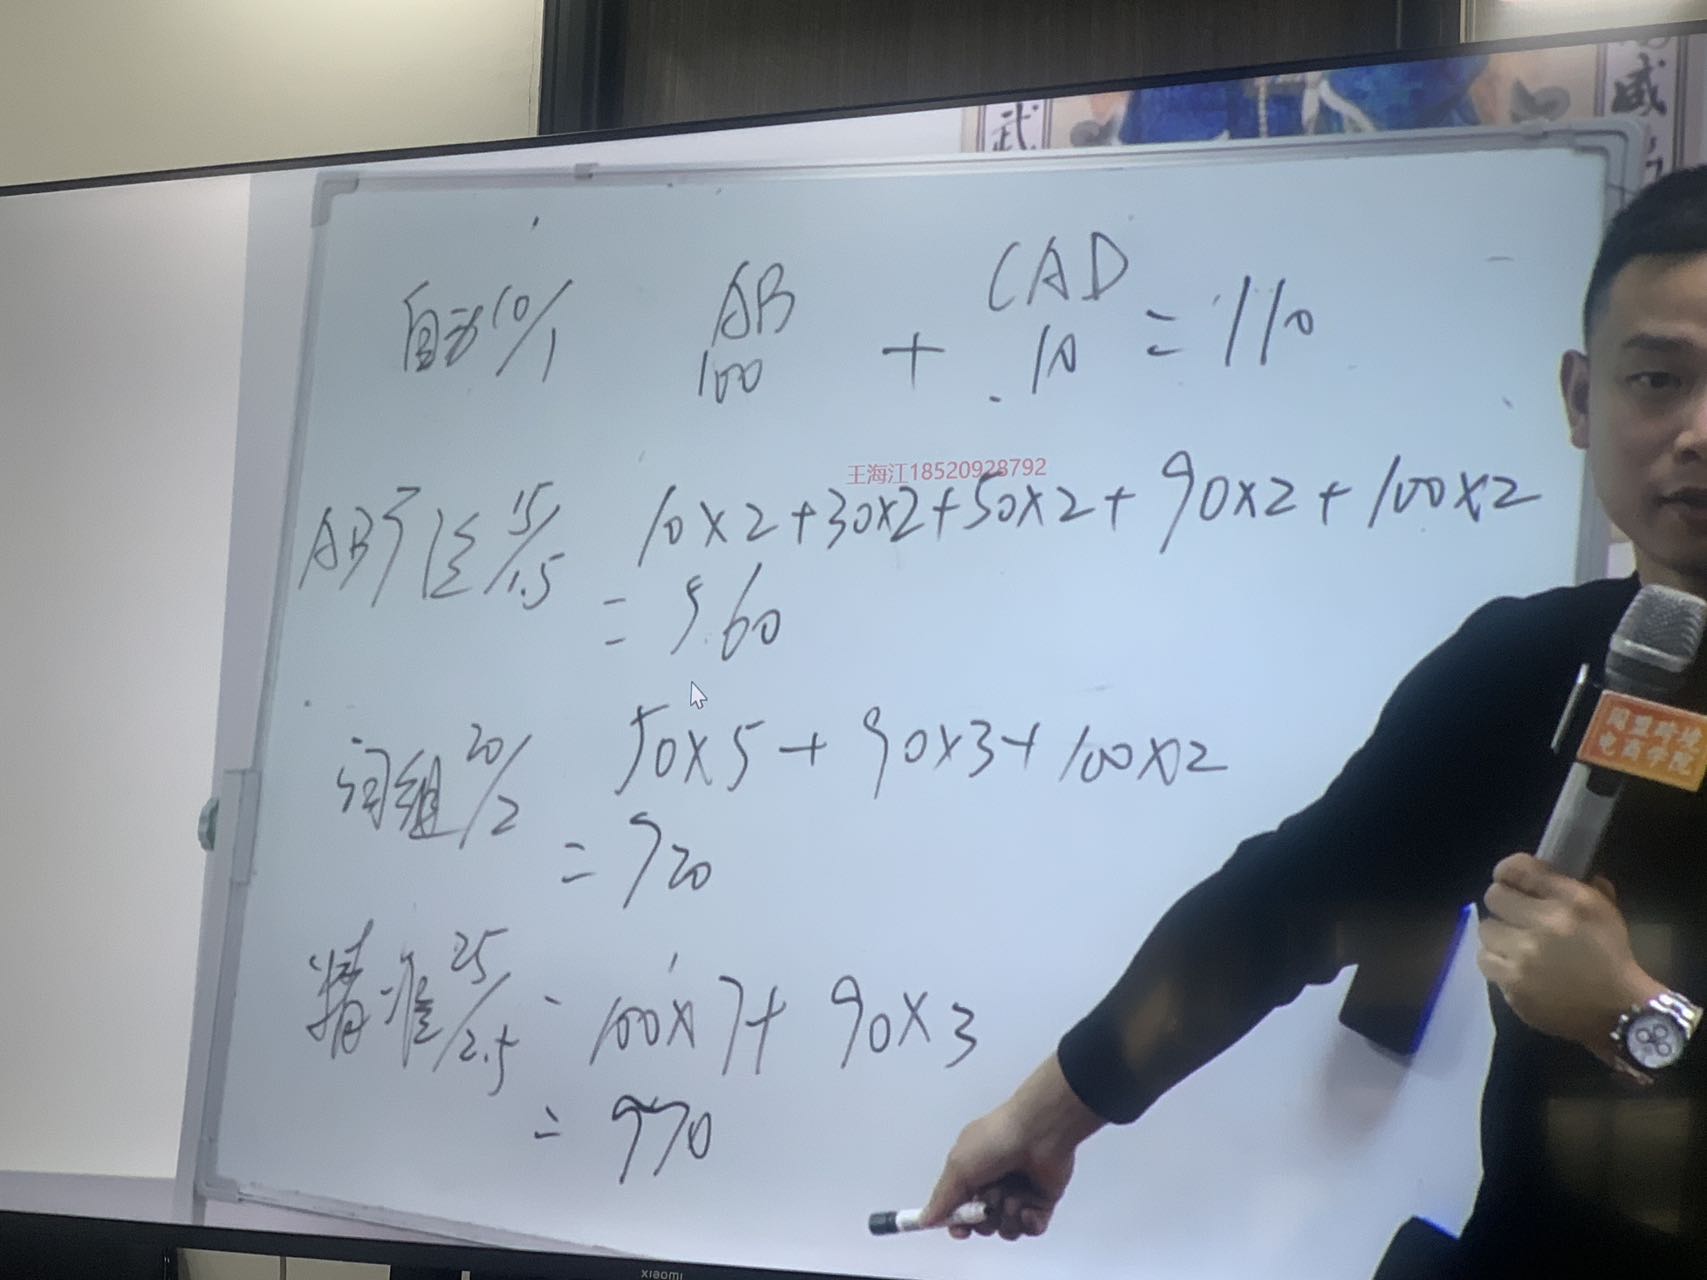 武
威
自动10/1 AB 100 + CAD 10 = 110
王海江18520928792
AB广泛15/1.5 10×2+30×2+50×2+90×2+100×2
=560
词组20/2 50×5+90×3+100×2
=720
精准25/2.5 = 100×7+90×3
=970
电商学院
xiaomi